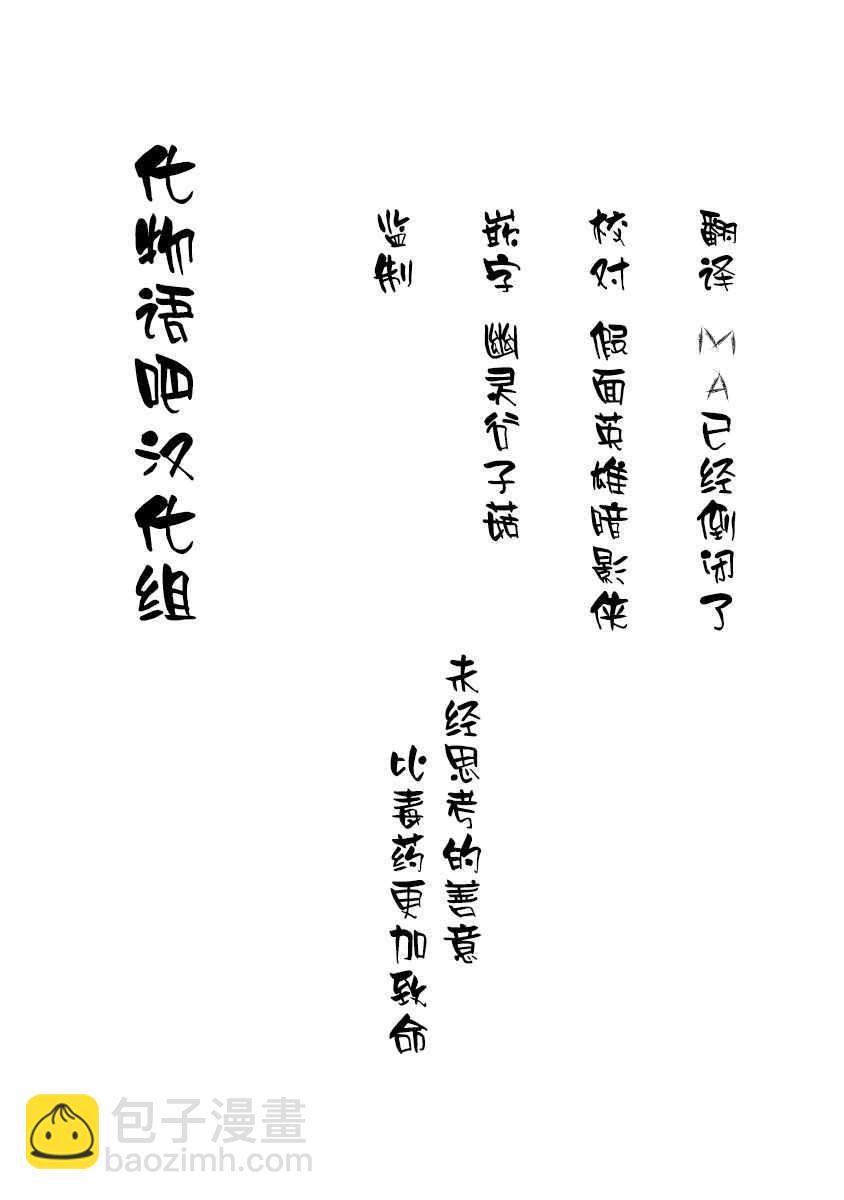 翻译 MA已经倒闭了
校对 假面英雄暗影侠
嵌字 幽灵谷子菇
监制
未经思考的善意
比毒药更加致命
化物语吧汉化组
包子漫畫
baozimh.com